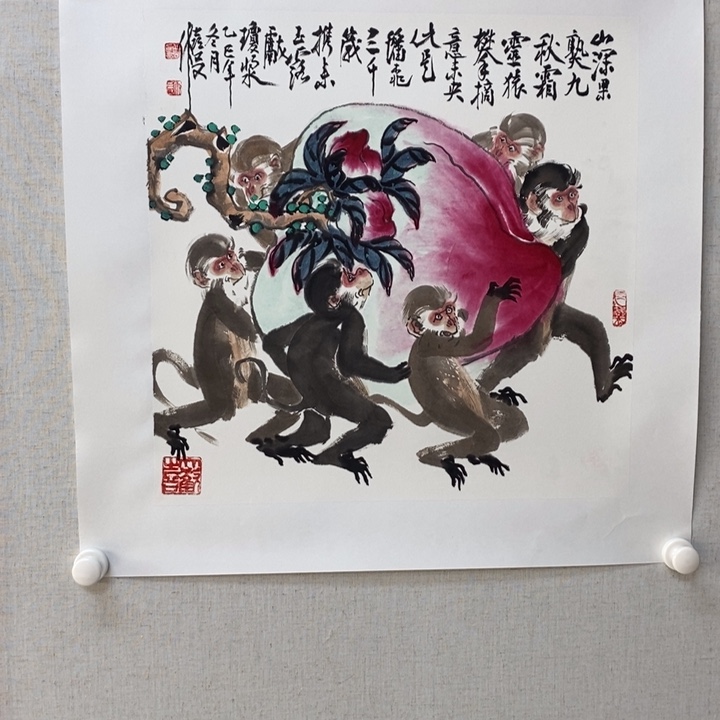 山深果
熟九
秋霜
靈猿
攀摘
意未央
此是
蟠
三千
歲
攜來
玉露
獻
瓊漿
乙巳年
冬月